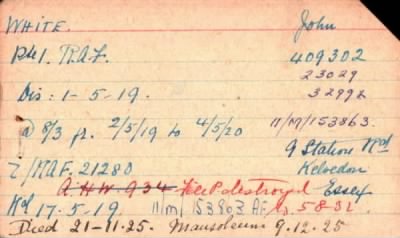 WHITE. John
Pte 1. R.A.F. 409302
23029
Dis: 1-5-19. 32992
@ 8/3 fr. 2/5/19 to 4/5/20 11/M/153863.
9 Station Rd
Z/RAF. 21280 Kelvedon
A.H.W. 934 File P destroyed Essex
Kd 17.5.19. 11/M/153863 AF 5832.
Died 21-11-25. Mausoleum 9.12.25